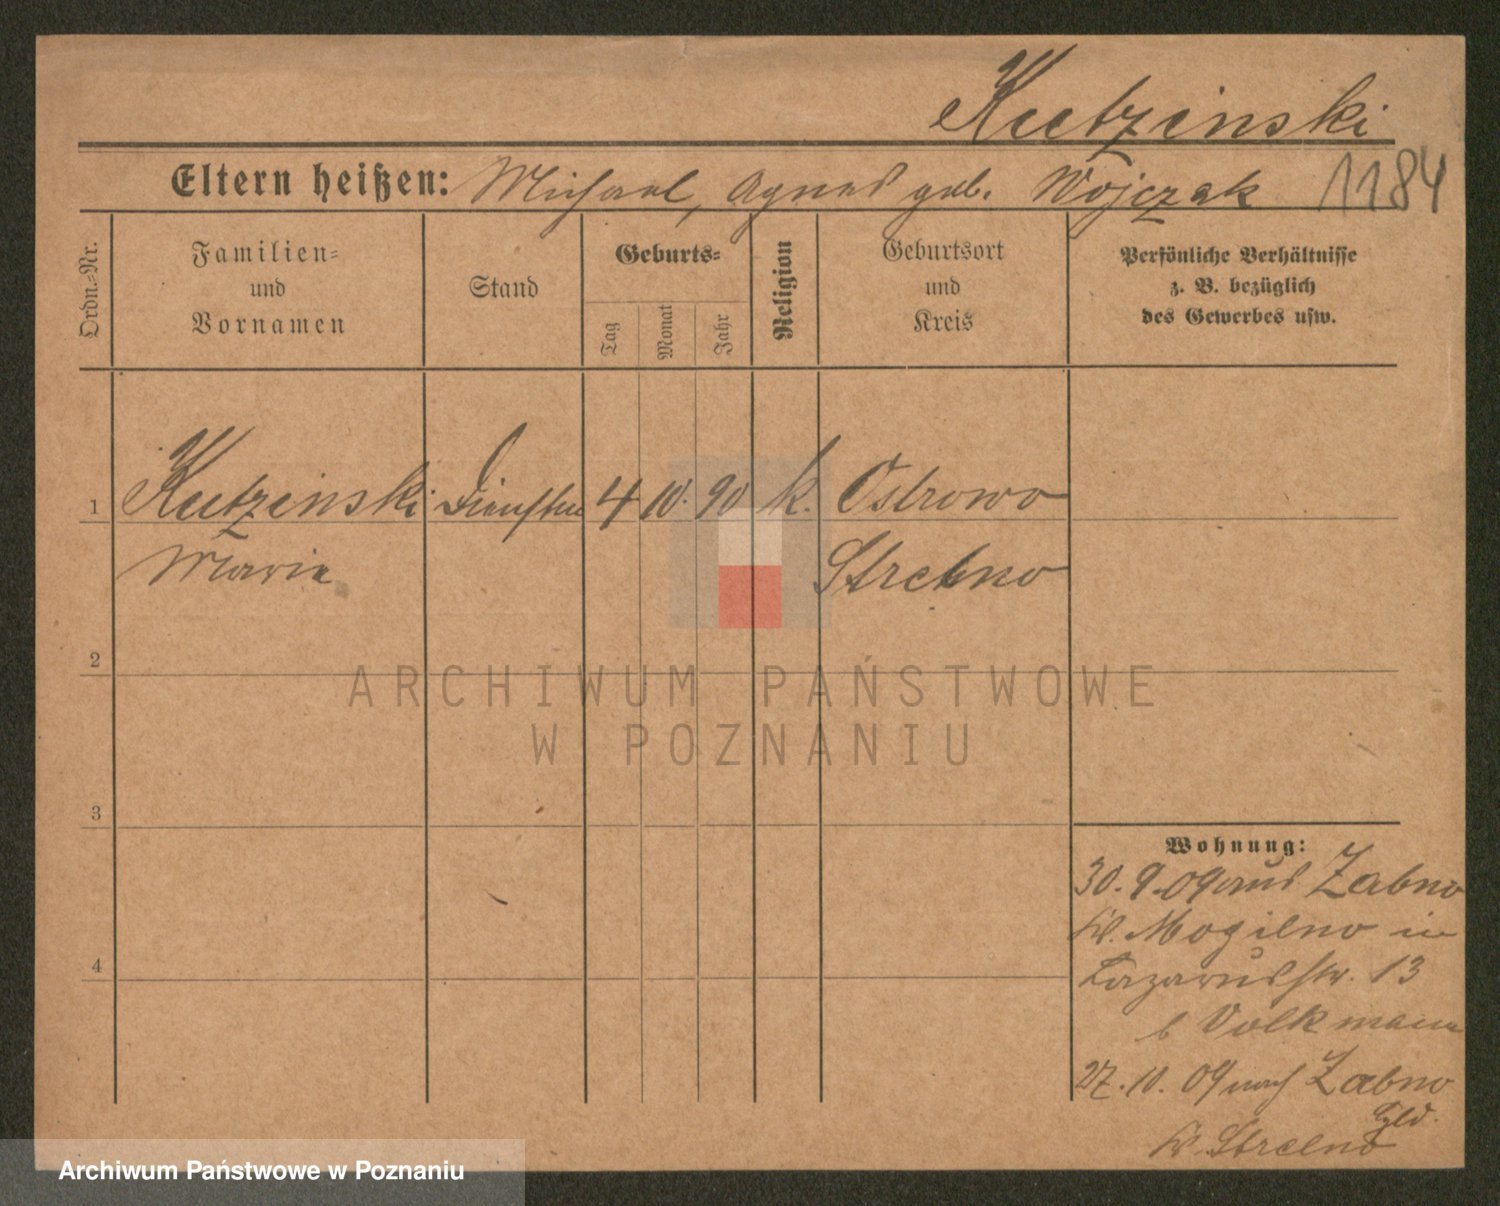 Kutzinski
Eltern heißen: Michael, Agnes geb. Wojczak 1184
Ordn.-Nr.
Familien-
und
Vornamen
Stand
Geburts-
Tag
Monat
Jahr
Religion
Geburtsort
und
Kreis
Persönliche Verhältnisse
z. B. bezüglich
des Gewerbes usw.
1 Kutzinski 4 10. 90 k. Ostrowo
Marie Strelno
2
3
4
Wohnung:
30.9.09 aus Zabno
Kr. Mogilno in
Lazarusstr. 13
b Volkmann
27.10.09 nach Zabno
Kr. Strelno
ARCHIWUM PAŃSTWOWE
W POZNANIU
Archiwum Państwowe w Poznaniu